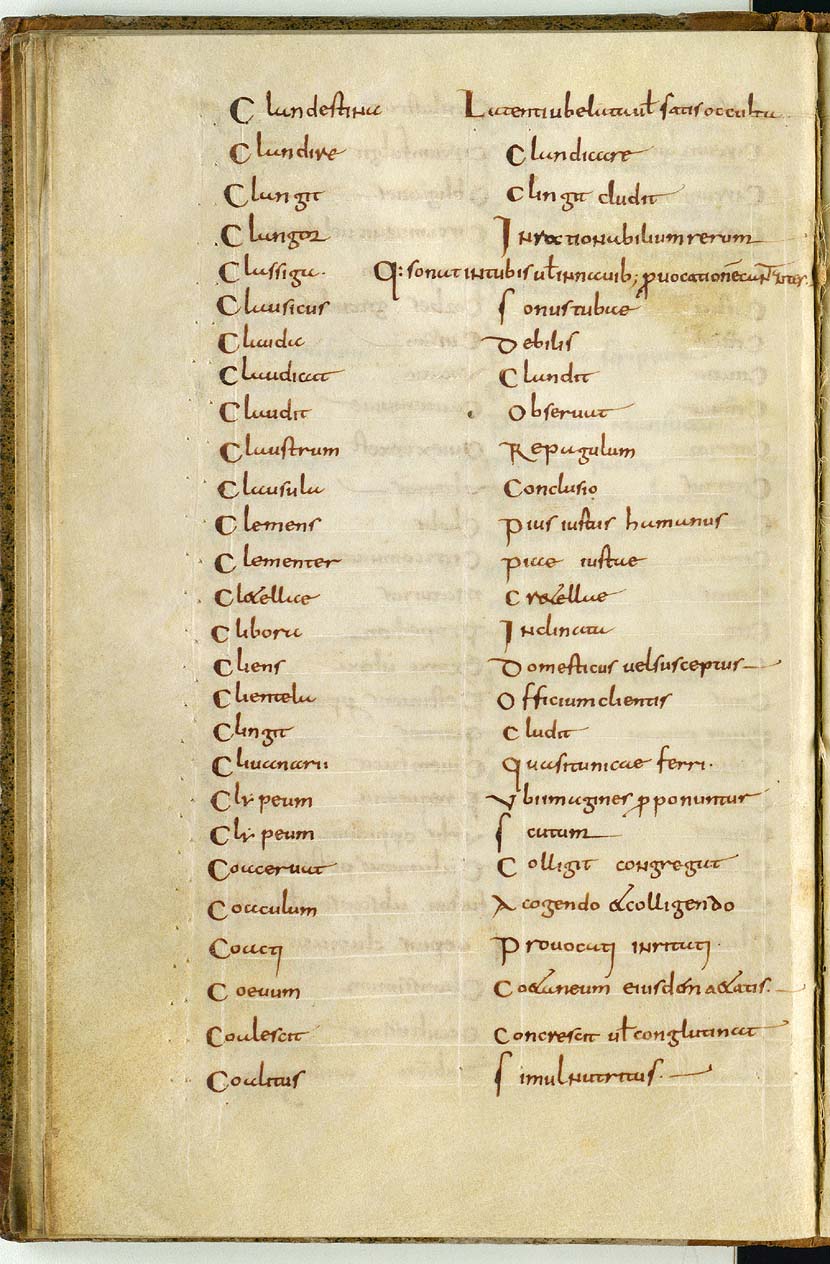 Clandestina Latenti ubelata ul̄ satis occulta
Clandire Clandicare
Clangit Clingit cludit
Clangor Inractionabilium rerum
Classica. Q: sonat in tubis ul̄ in nauib;
Clausicus Sonus tubae
Clauda Debilis
Claudicat Clandit
Claudit Obseruat
Claustrum Repagulum
Clausula Conclusio
Clemens Pius iustus humanus
Clementer Piae iustae
Cl&ellae Cr&ellae
Clibora Inclinata
Cliens Domesticus uel susceptus
Clientela Officium clientis
Clingit Cludit
Cliuanarii Quasi tunicae ferri.
Clypeum Ubi imagines p̱ponuntur
Clypeum Scutum
Coaceruat Colligit congregat
Coaculum A cogendo & colligendo
Coacti Prouocati inritati.
Coeuum Co&aneum eiusdem a&atis.
Coalescit Concrescit ul̄ conglutinat
Coalitus Simul nutritus.